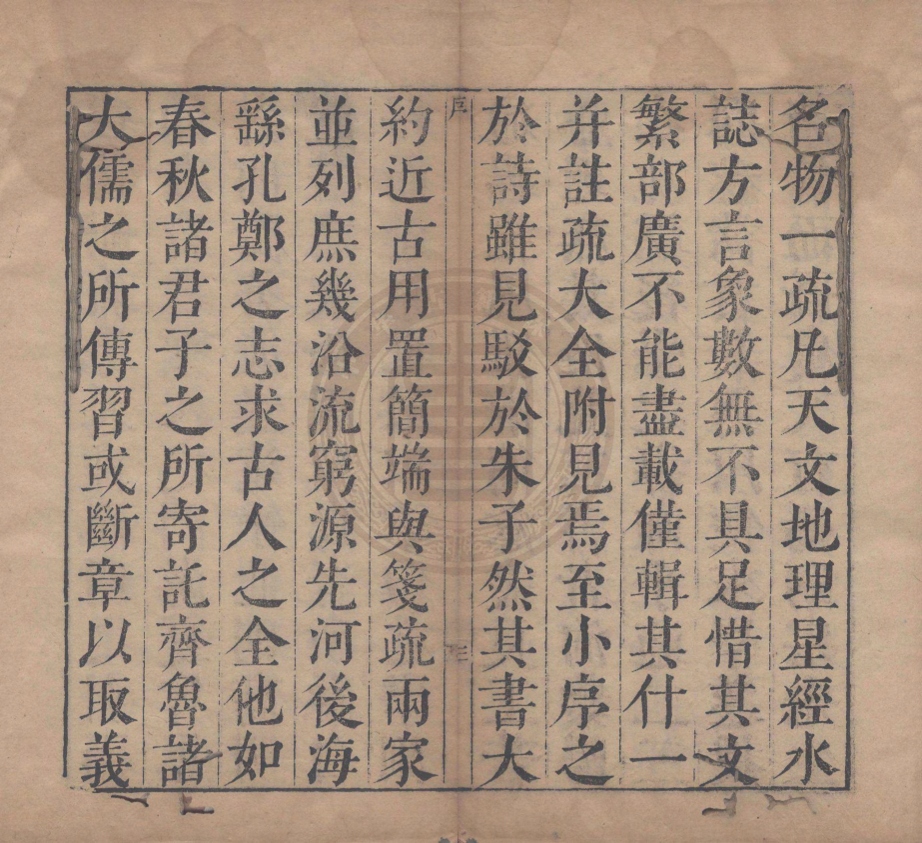 名物一疏凡天文地理星經水
誌方言象數無不具足惜其文
繁部廣不能盡載僅輯其什一
并註疏大全附見焉至小序之
於詩雖見駁於朱子然其書大
序
三
約近古用置簡端與箋疏兩家
並列庶幾沿流窮源先河後海
繇孔鄭之志求古人之全他如
春秋諸君子之所寄託齊魯諸
大儒之所傳習或斷章以取義